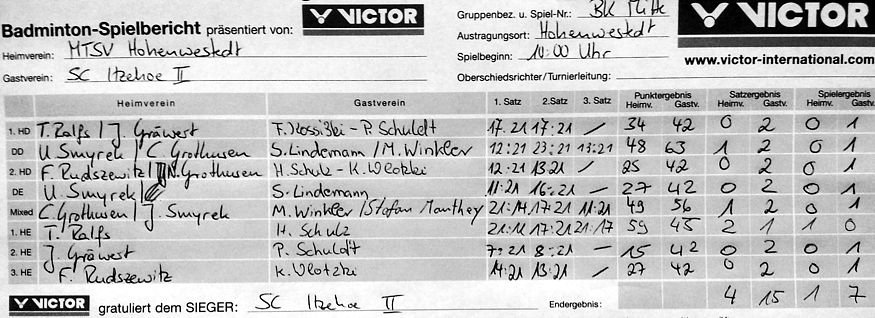 Badminton-Spielbericht präsentiert von: VICTOR
Gruppenbez. u. Spiel-Nr.: BK Mitte
VICTOR
Heimverein: MTSV Hohenwestedt
Austragungsort: Hohenwestedt
Gastverein: SC Itzehoe II
Spielbeginn: 10:00 Uhr
www.victor-international.com
Oberschiedsrichter/Turnierleitung:
Heimverein Gastverein 1. Satz 2.Satz 3. Satz Punktergebnis Satzergebnis Spielergebnis
Heimv. Gastv. Heimv. Gastv. Heimv. Gastv.
1. HD T. Ralfs / J. Gräwert F. Kossiski - P. Schuldt 17:21 17:21 / 34 42 0 2 0 1
DD U. Smyrek / C. Grothusen S. Lindemann / M. Winkler 12:21 23:21 13:21 48 63 1 2 0 1
2. HD F. Rudszewitz / N. Grothusen H. Schulz - K. Vlotzki 12:21 13:21 / 25 42 0 2 0 1
DE U. Smyrek S. Lindemann 11:21 16:21 / 27 42 0 2 0 1
Mixed C. Grothusen / J. Smyrek M. Winkler / Stefan Manthey 21:14 17:21 11:21 49 56 1 2 0 1
1. HE T. Ralfs H. Schulz 17:21 21:17 59 45 2 1 1 0
2. HE J. Gräwert P. Schuldt 7:21 8:21 / 15 42 0 2 0 1
3. HE F. Rudszewitz K. Vlotzki 14:21 13:21 / 27 42 0 2 0 1
VICTOR gratuliert dem SIEGER: SC Itzehoe II Endergebnis: 4 15 1 7